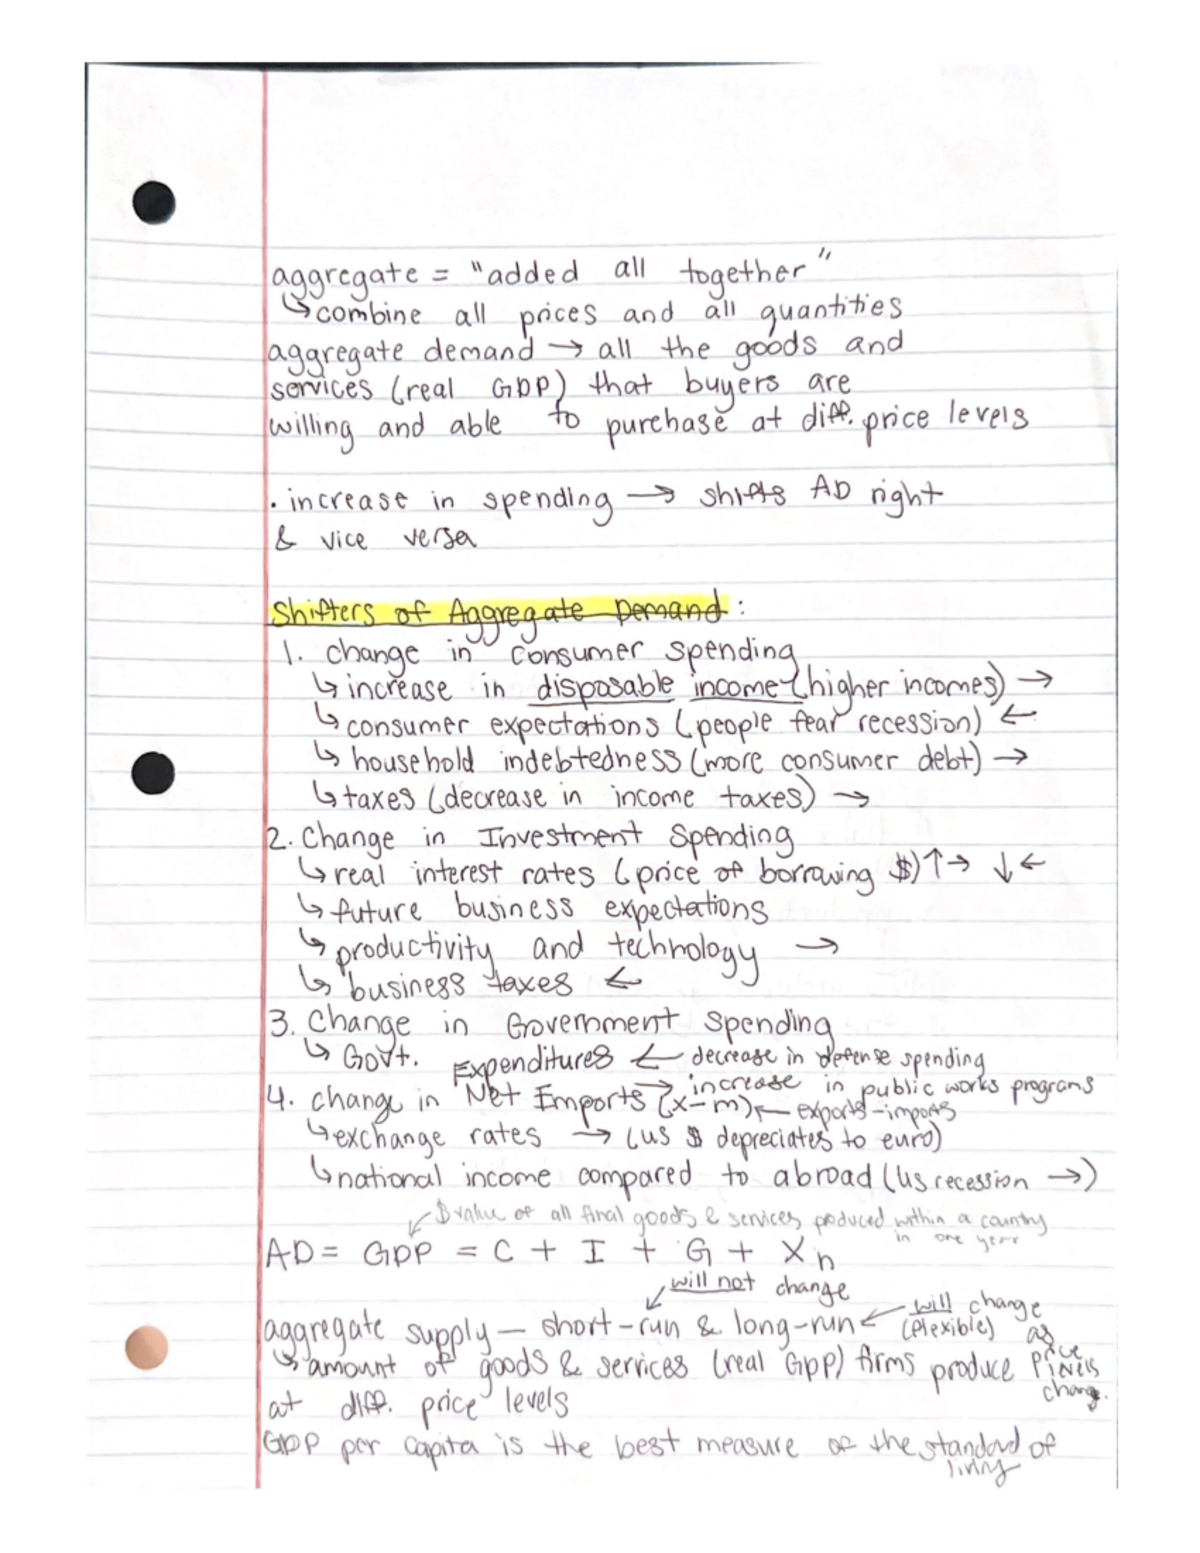 aggregate = "added all together"
↳ combine all prices and all quantities
aggregate demand → all the goods and
services (real GDP) that buyers are
willing and able to purchase at diff. price levels
· increase in spending → shifts AD right
& vice versa
Shifters of Aggregate Demand:
1. change in consumer spending
↳ increase in disposable income (higher incomes) →
↳ consumer expectations (people fear recession) ←
↳ household indebtedness (more consumer debt) →
↳ taxes (decrease in income taxes) →
2. Change in Investment Spending
↳ real interest rates (price of borrowing $) ↑→ ↓←
↳ future business expectations
↳ productivity and technology →
↳ business taxes ←
3. Change in Government Spending
↳ Govt. Expenditures ← decrease in defense spending
→ increase in public works programs
4. change in Net Emports (x-m) ← exports-imports
↳ exchange rates → (us $ depreciates to euro)
↳ national income compared to abroad (us recession →)
$ value of all final goods & services produced within a country
in one year
AD = GDP = C + I + G + Xn
will not change
will change
aggregate supply — short-run & long-run ← (flexible) as
↳ amount of goods & services (real GDP) firms produce price levels
change.
at diff. price levels
GDP per capita is the best measure of the standard of
living